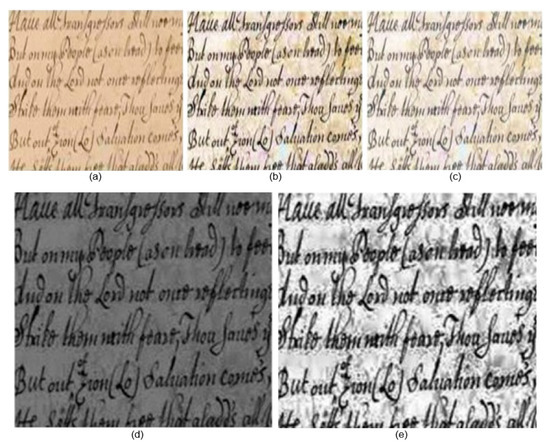 Haue all Transgressors still
But on my People (as on head) to
And on the Lord not once reflecting
Strike them with feare, Thou Saues y
But out of Zion (Lo) Saluation comes,
them free that
(a)
Haue all Transgressors still
But on my People (as on head) to
And on the Lord not once reflecting
Strike them with feare, Thou Saues y
But out of Zion (Lo) Saluation comes,
them free that
(b)
Haue all Transgressors still
But on my People (as on head) to
And on the Lord not once reflecting
Strike them with feare, Thou Saues y
But out of Zion (Lo) Saluation comes,
them free that
(c)
Haue all Transgressors still
But on my People (as on head) to
And on the Lord not once reflectings
Strike them with feare, Thou Saues y
But out of Zion (Lo) Saluation comes,
He them free that
(d)
Haue all Transgressors still
But on my People (as on head) to
And on the Lord not once reflectings
Strike them with feare, Thou Saues y
But out of Zion (Lo) Saluation comes,
He them free that
(e)